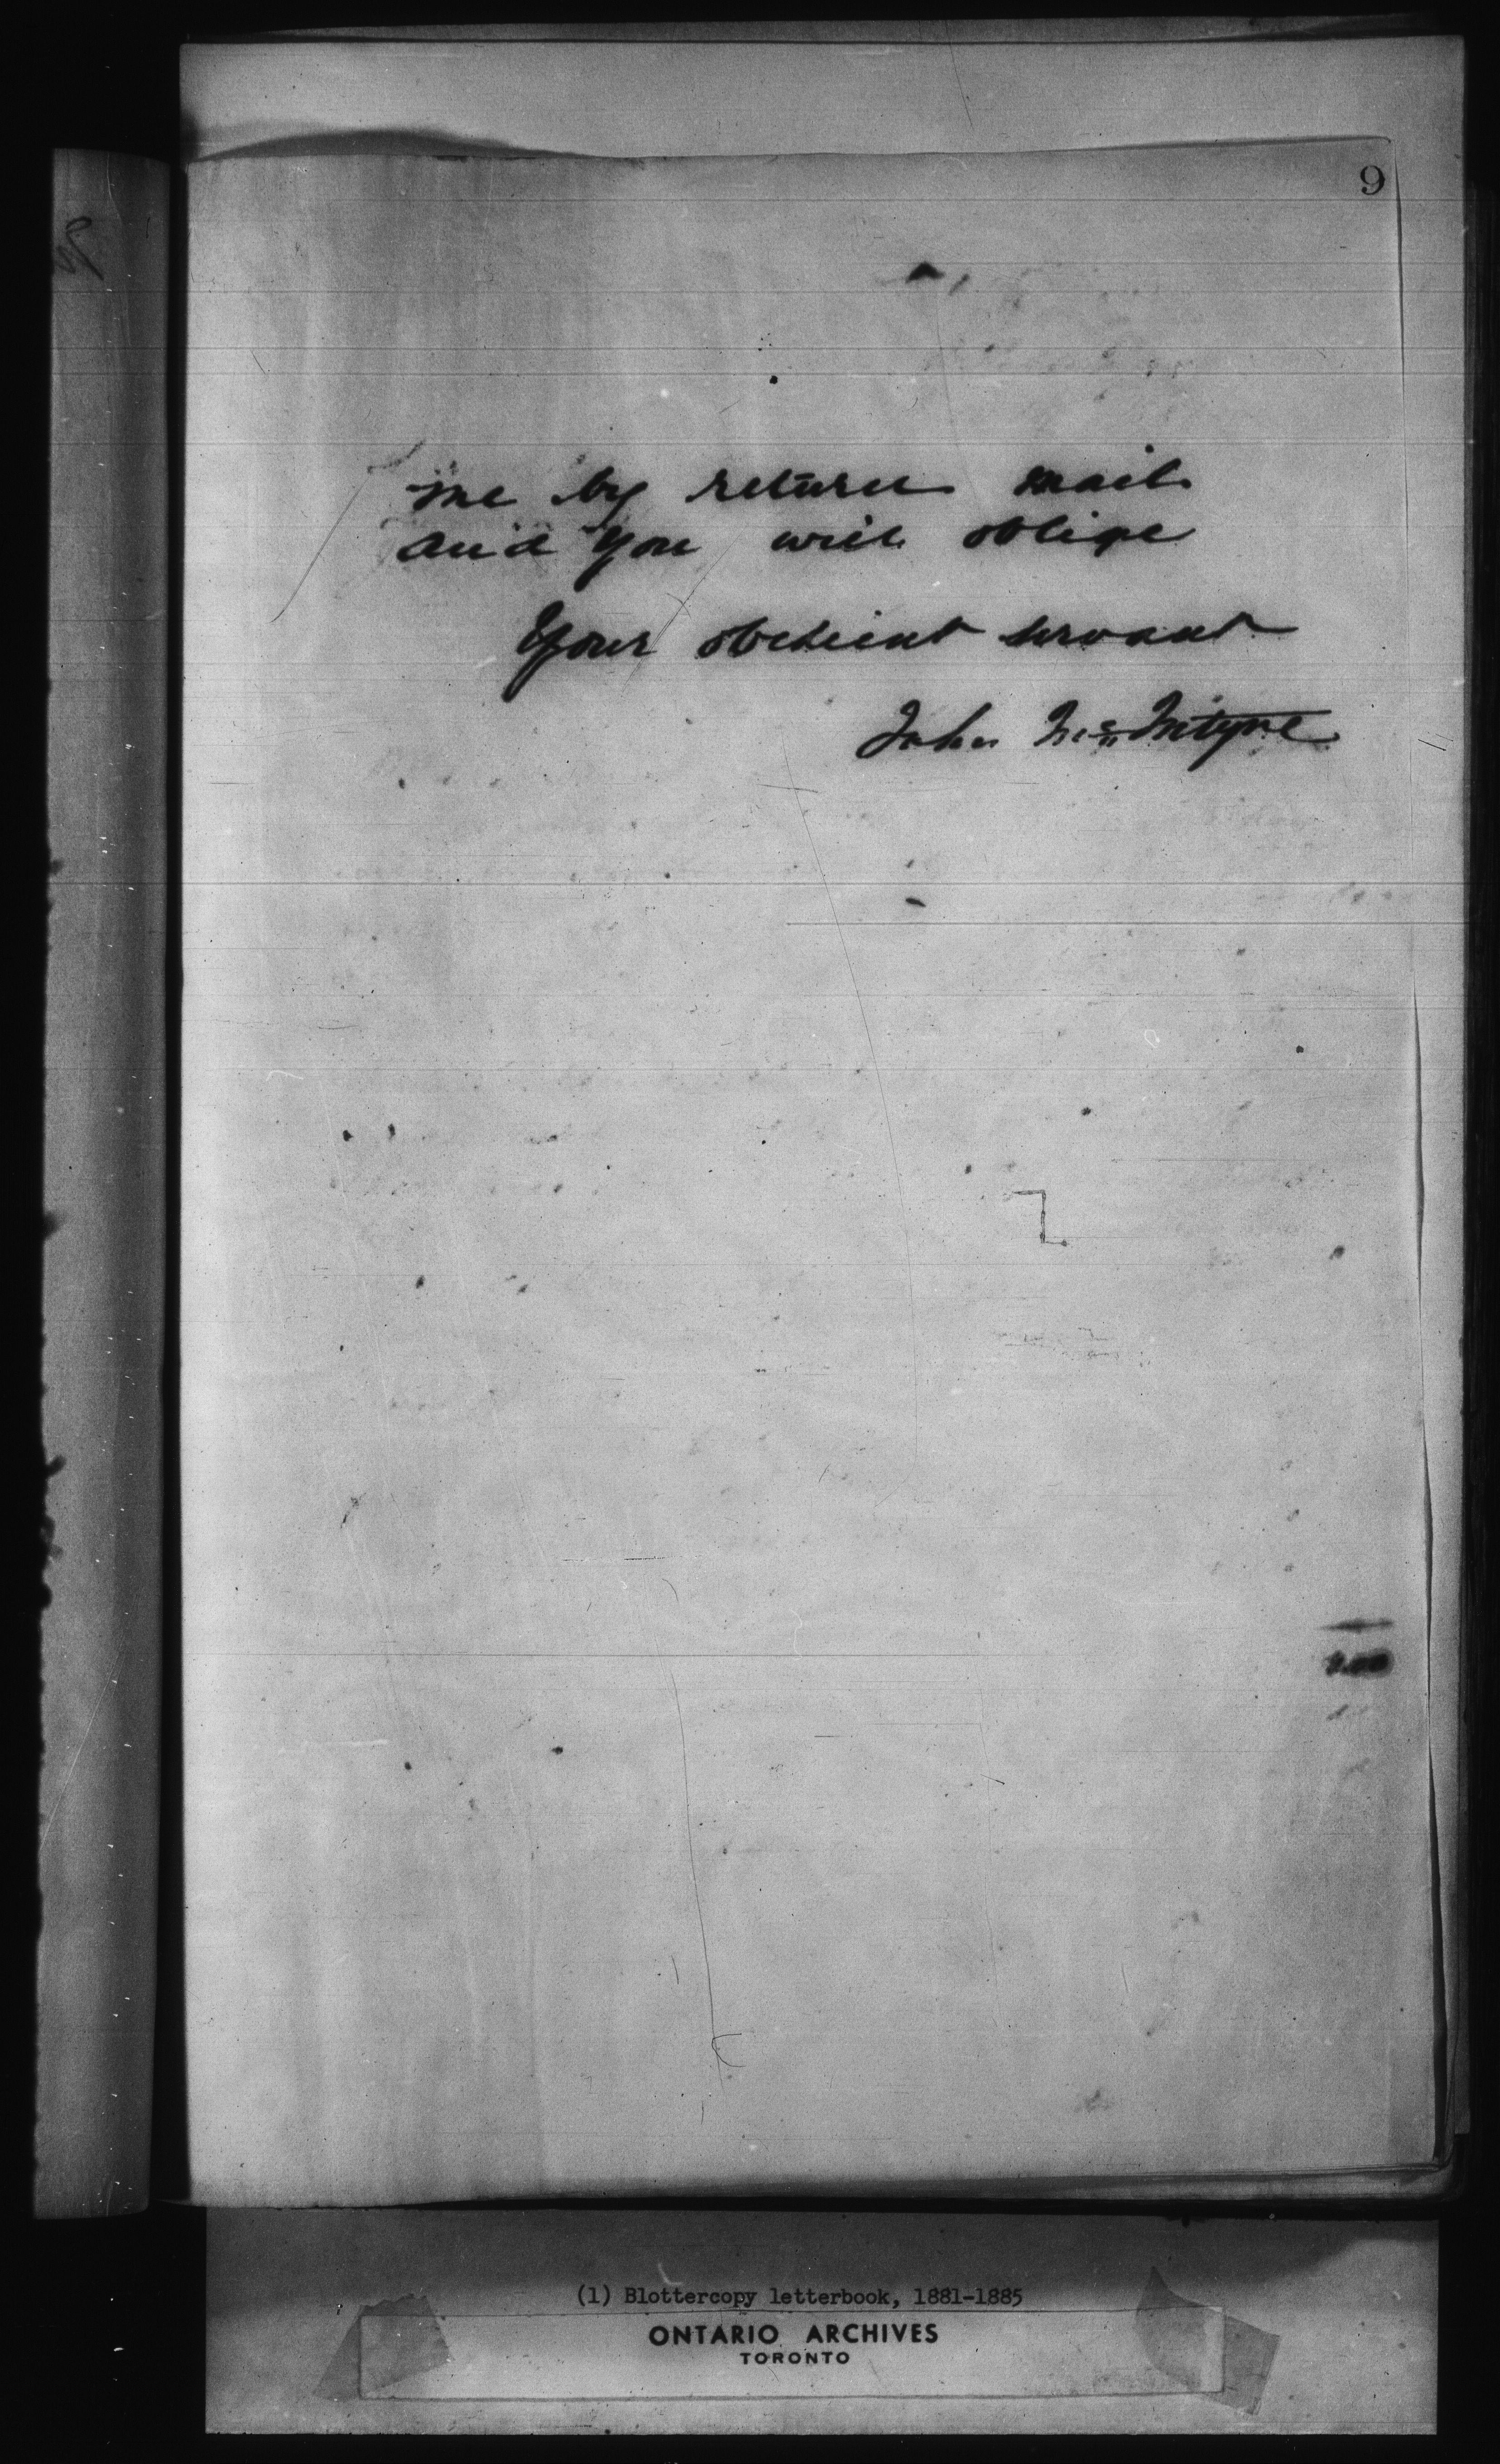 9
me by return mail
and you will oblige
Your obedient servant
John McIntyre
(1) Blottercopy letterbook, 1881-1885
ONTARIO ARCHIVES
TORONTO